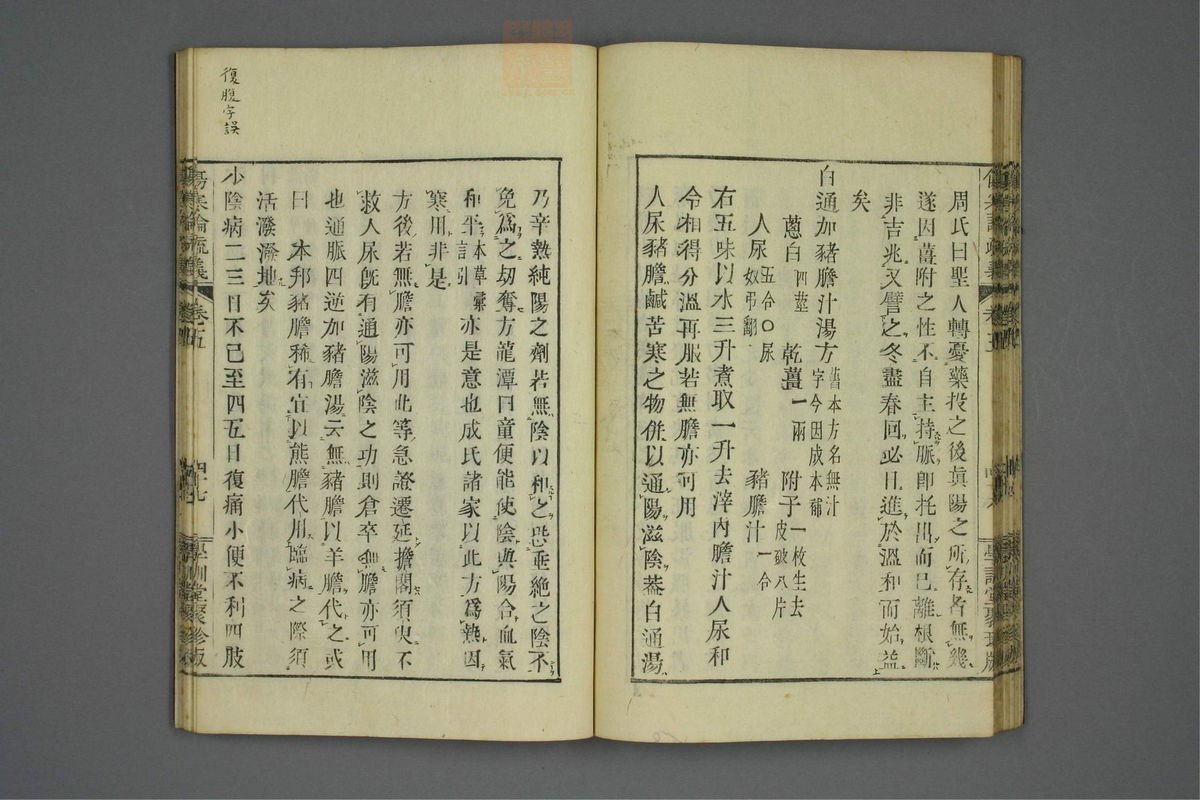 周氏曰聖人轉憂藥投之後眞陽之所存者無幾
遂因薑附之性不自主持脈卽托出而已離根斷
非吉兆又譬之冬盡春回必日進於溫和而始益
矣
白通加豬膽汁湯方舊本方名無汁字今因成本補
蔥白四莖 乾薑一兩 附子一枚生去皮破八片
人尿五合〇尿奴弔翻 豬膽汁一合
右五味以水三升煮取一升去滓內膽汁人尿和
令相得分溫再服若無膽亦可用
人尿豬膽鹹苦寒之物併以通陽滋陰蓋白通湯
乃辛熱純陽之劑若無陰以和之恐垂絕之陰不
免爲之刼奪方龍潭曰童便能使陰與陽合血氣
和平本草彙言引亦是意也成氏諸家以此方爲熱因
寒用非是
方後若無膽亦可用此等急證遷延擔閣須臾不
救人尿旣有通陽滋陰之功則倉卒無膽亦可用
也通脈四逆加豬膽湯云無豬膽以羊膽代之或
曰 本邦豬膽稀有宜以熊膽代用臨病之際須
活潑潑地矣
少陰病二三日不已至四五日復痛小便不利四肢
復腹字誤
傷寒論疏義 卷五 四十七 學訓堂聚珍版